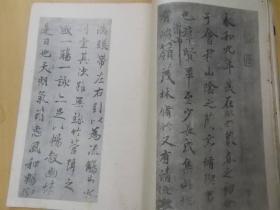 永和九年歲在癸丑暮春之初會
于會稽山陰之蘭亭脩稧事
也群賢畢至少長咸集此地
峻領茂林脩竹又有清流激
湍暎帶左右引以為流觴曲水
列坐其次雖無絲竹管弦之
盛一觴一詠亦足以暢敘幽情
是日也天朗氣清惠風和暢